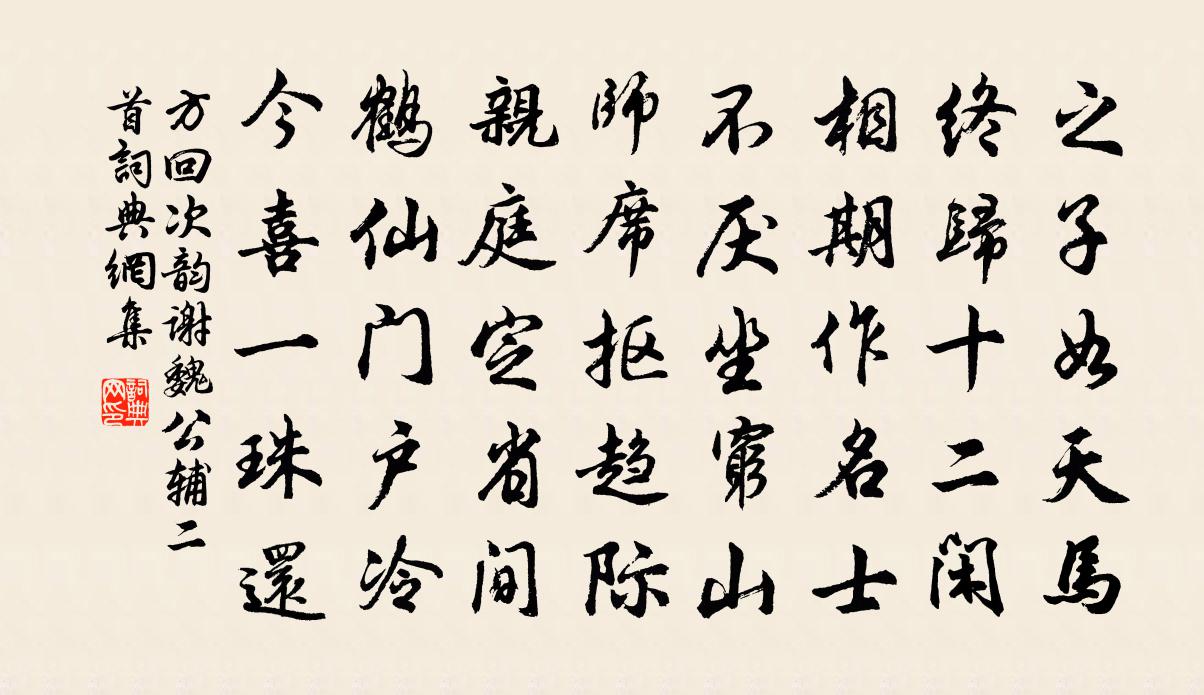 之子如天馬
終歸十二閑
相期作名士
不厌坐窮山
師席抠趋际
親庭定省间
鶴仙门户冷
今喜一珠還
方回次韵谢魏公辅二
首詞典網集
詞典网印